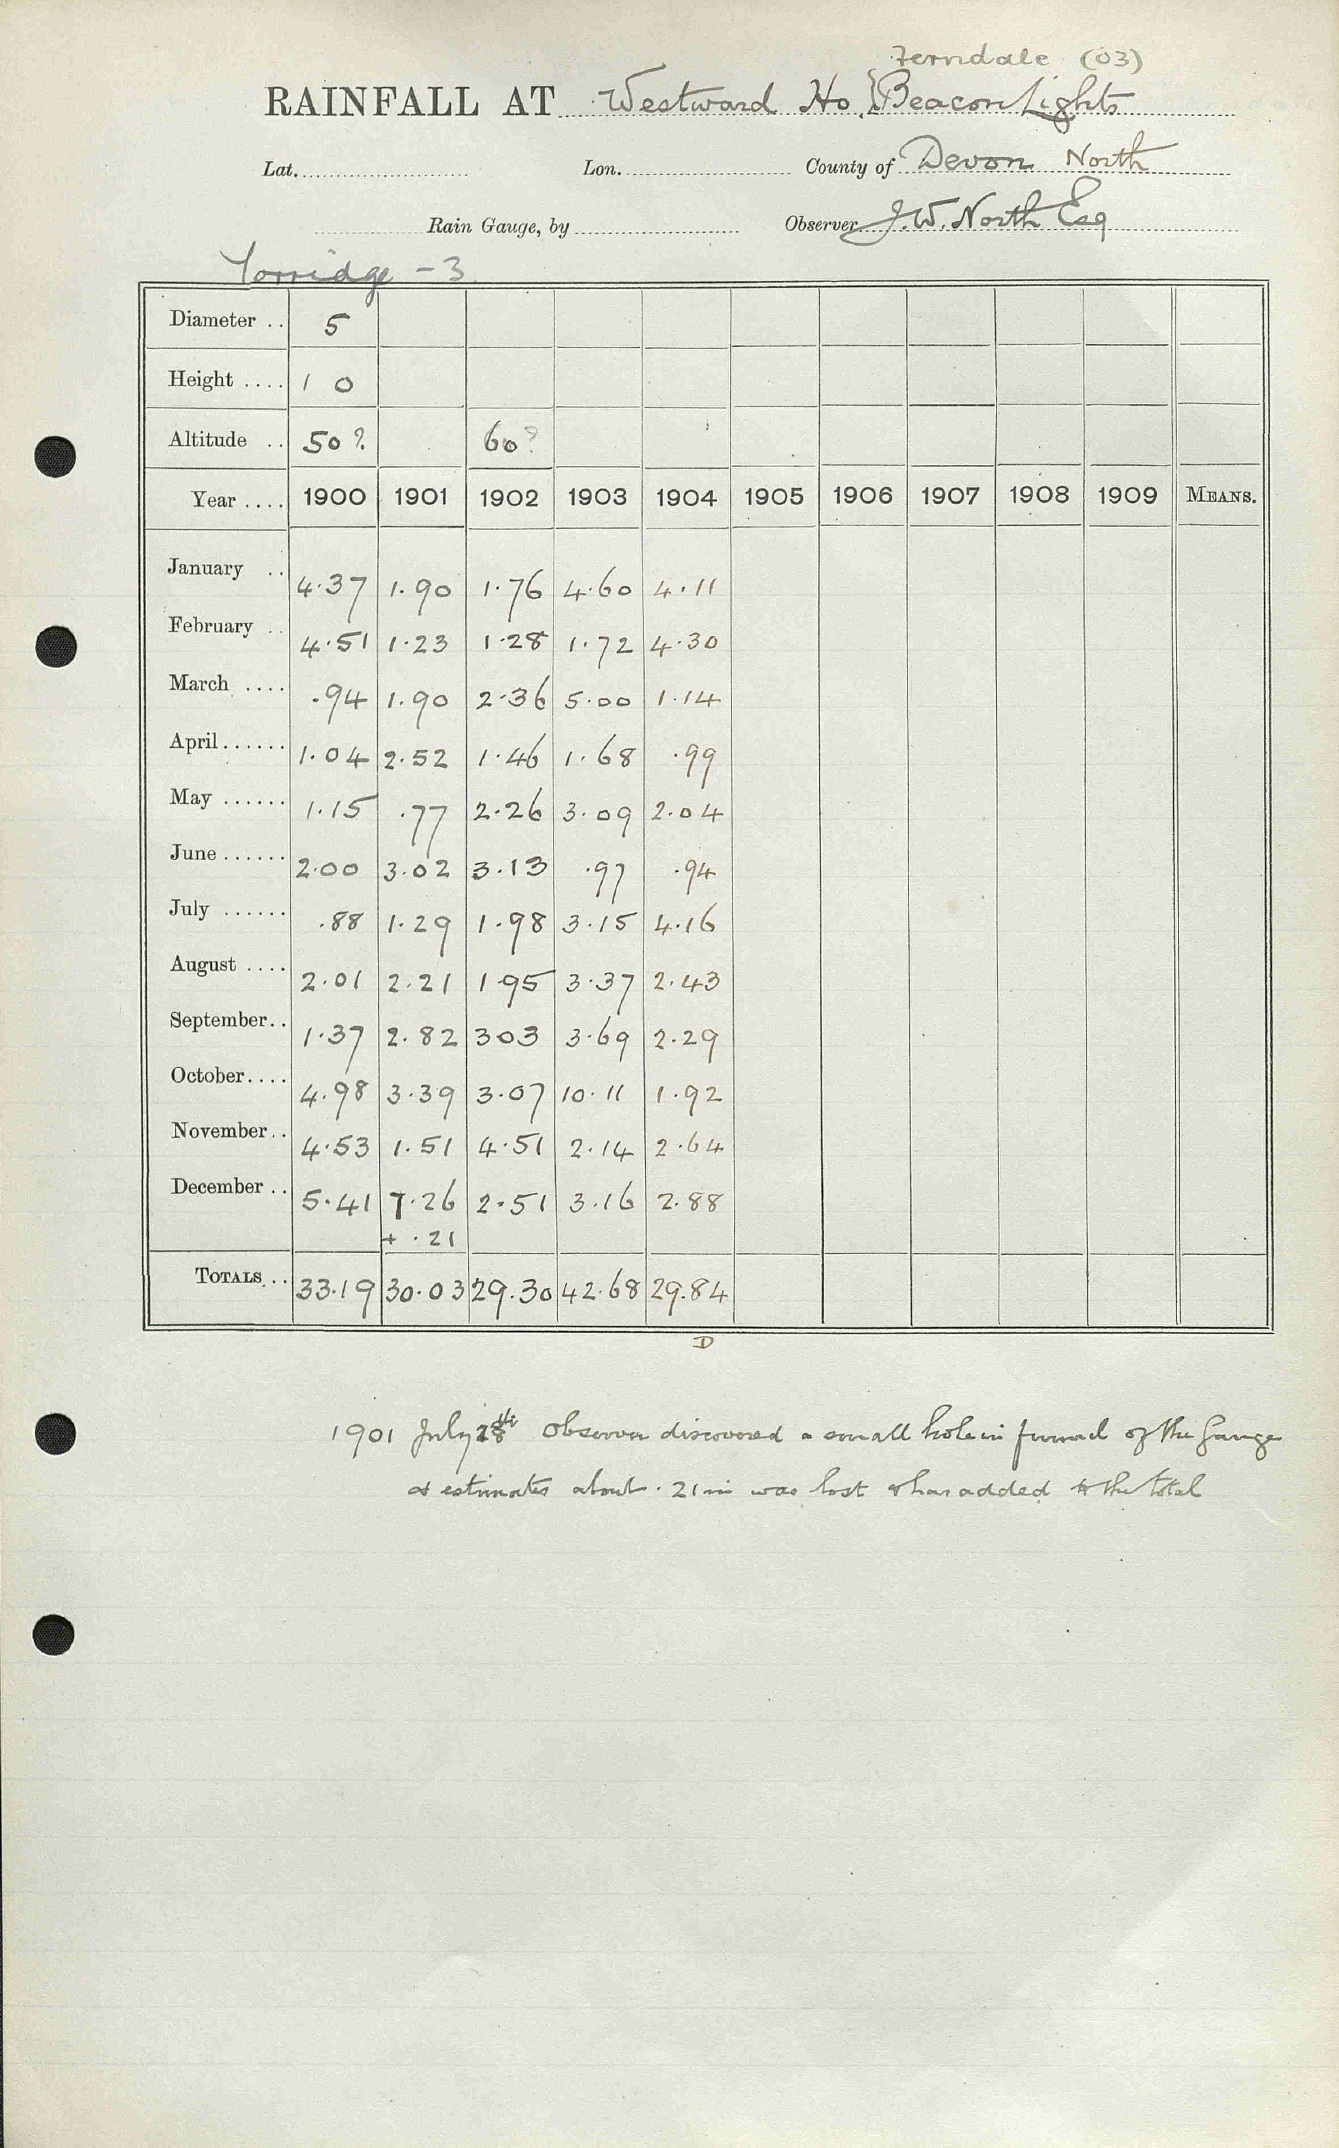 Ferndale (03)
RAINFALL AT Westward Ho {Beacon Lights
Lat. Lon. County of Devon North
Rain Gauge, by Observer J.W. North Esq
Torridge - 3
Diameter .. 5
Height .... 1 0
Altitude .. 50? 60?
Year .... 1900 1901 1902 1903 1904 1905 1906 1907 1908 1909 MEANS.
January .. 4.37 1.90 1.76 4.60 4.11
February .. 4.51 1.23 1.28 1.72 4.30
March .... .94 1.90 2.36 5.00 1.14
April...... 1.04 2.52 1.46 1.68 .99
May ...... 1.15 .77 2.26 3.09 2.04
June ...... 2.00 3.02 3.13 .97 .94
July ...... .88 1.29 1.98 3.15 4.16
August .... 2.01 2.21 1.95 3.37 2.43
September.. 1.37 2.82 303 3.69 2.29
October.... 4.98 3.39 3.07 10.11 1.92
November.. 4.53 1.51 4.51 2.14 2.64
December .. 5.41 7.26 2.51 3.16 2.88
+ .21
TOTALS... 33.19 30.03 29.30 42.68 29.84
D
1901 July 28th Observer discovered a small hole in funnel of the Gauge
& estimates about .21 in was lost & has added to the total